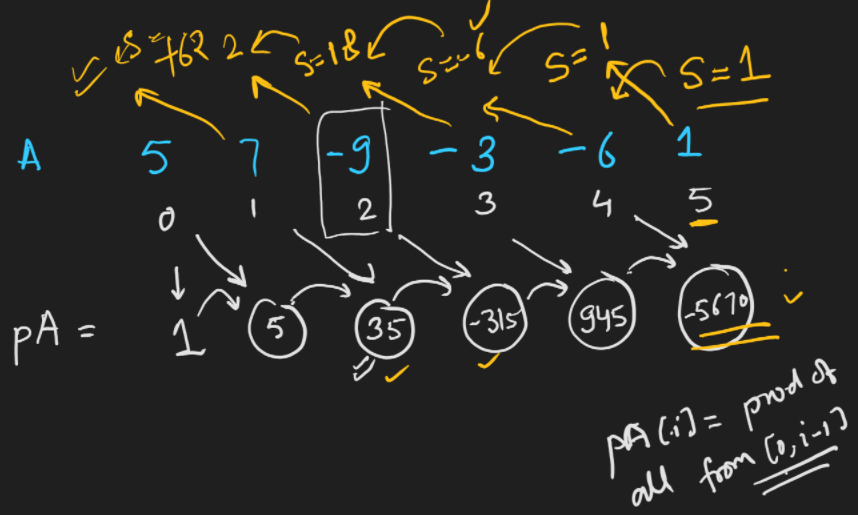 S=+162 2 S=18 S=-6 S=1 S=1
A 5 7 -9 -3 -6 1
0 1 2 3 4 5
pA = 1 5 35 -315 945 -5670
pA[i] = prod of
all from [0, i-1]